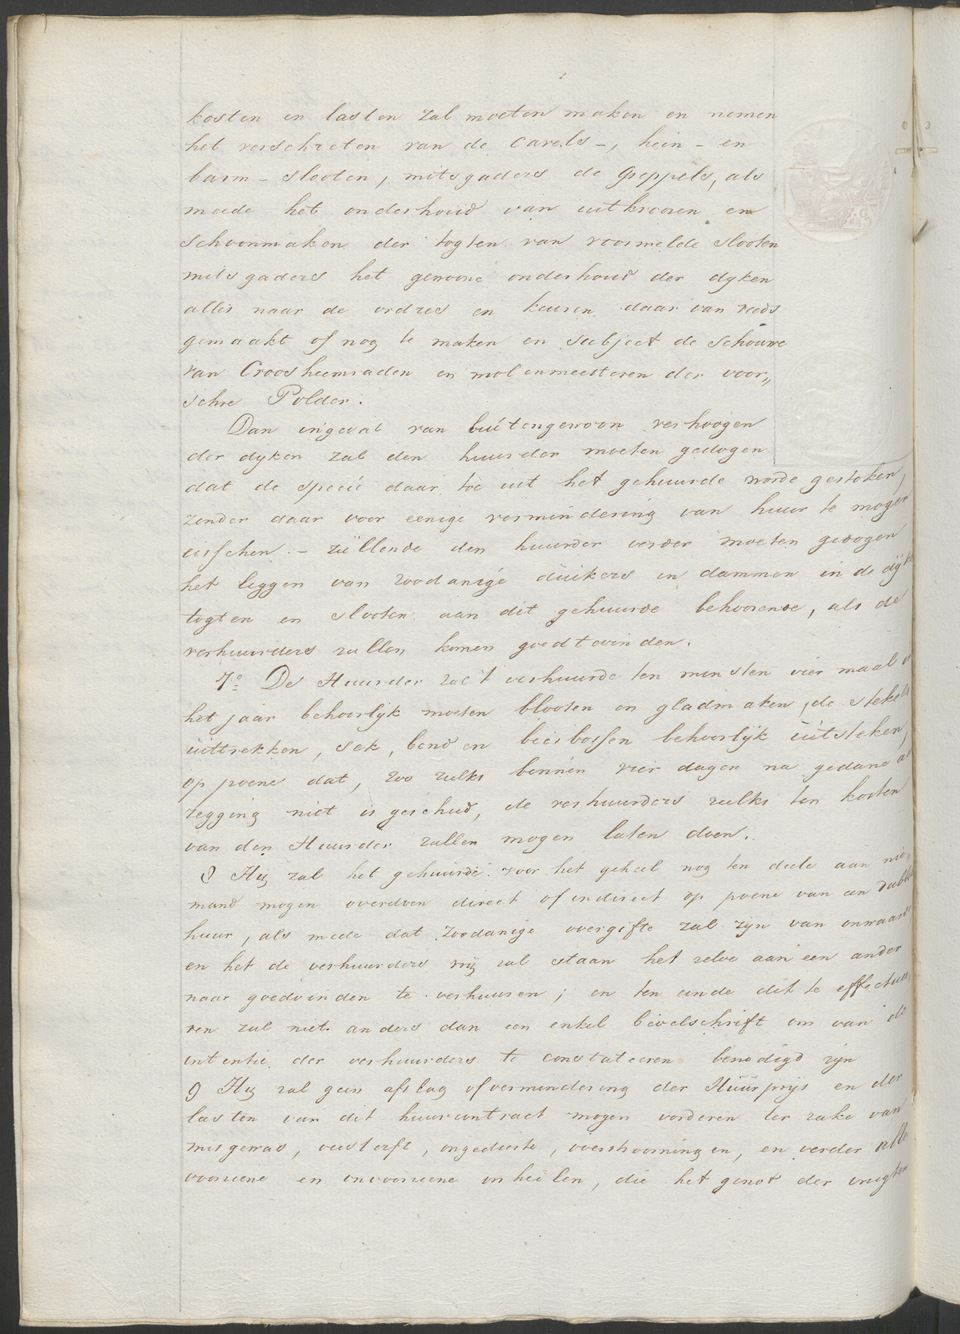 kosten en lasten zal moeten maken en nemen
het verschieten van de Cavels-, hein- en
barm- slooten, mitsgaders de Greppels, als
mede het onderhoud van uitkroosen en
schoonmaken der togten van voormelde slooten
mitsgaders het gewone onderhoud der dyken
alles naar de ordres en keuren daar van reeds
gemaakt of nog te maken en subject de schouwe
van Croosheemraden en molenmeesteren der voor„
schre Polder.
Dan ingeval van buitengewoon verhoogen
der dyken zal den huurder moeten gedogen
dat de specie daar toe uit het gehuurde worde gestoken,
zonder daar voor eenige vermindering van huur te mogen
eisschen. - zullende den huurder verder moeten gedogen
het leggen van zoodanige duikers en dammen in de dijk
togten en slooten aan dit gehuurde behoorende, als de
verhuurders zullen komen goedtevinden.
7o De Huurder zal 't verhuurde ten minsten vier maal
het jaar behoorlijk moeten blooten en gladmaken, de stekels
uittrekken, sek, bend en biesbossen behoorlijk uitsteken
op poene dat, zoo zulks binnen vier dagen na gedane
zegging niet is geschied, de verhuurders zulks ten kosten
van den Huurder zullen mogen laten doen.
8 Hij zal het gehuurde voor het geheel nog ten deele aan nie,
mand mogen overdoen direct of indirect op poene van een dubble
huur, als mede dat zoodanige overgifte zal zijn van onwaarde
en het de verhuurders vrij zal staan het zelve aan een ander
naar goedvinden te verhuuren; en ten einde dit te effectue
ren zal niet anders dan een enkel bevelschrift om van de
intentie der verhuurders te constateeren benodigd zijn
9 Hij zal geen afslag of vermindering der Huurprijs en der
lasten van dit huurcontract mogen vorderen ter zake van
misgewas, veesterft, ongedierte, overstroomingen, en verder alle
voorziene en onvoorziene onheilen, die het genot der vrugten